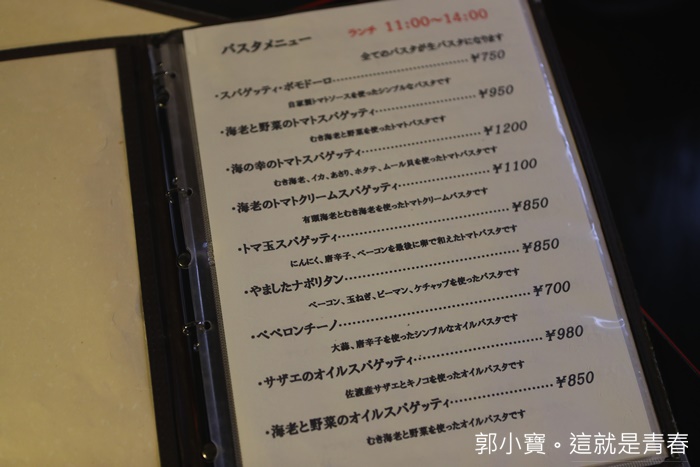 パスタメニュー
ランチ 11:00〜14:00
全てのパスタが生パスタになります
・スパゲッティ・ポモドーロ……………………￥750
自家製トマトソースを使ったシンプルなパスタです
・海老と野菜のトマトスパゲッティ……………………￥950
むき海老と野菜を使ったトマトパスタです
・海の幸のトマトスパゲッティ……………………￥1200
むき海老、イカ、あさり、ホタテ、ムール貝を使ったトマトパスタです
・海老のトマトクリームスパゲッティ……………………￥1100
有頭海老とむき海老を使ったトマトクリームパスタです
・トマ玉スパゲッティ……………………￥850
にんにく、唐辛子、ベーコンを最後に卵で和えたトマトパスタです
・やましたナポリタン……………………￥850
ベーコン、玉ねぎ、ピーマン、ケチャップを使ったパスタです
・ペペロンチーノ……………………￥700
大蒜、唐辛子を使ったシンプルなオイルパスタです
・サザエのオイルスパゲッティ……………………￥980
佐渡産サザエとキノコを使ったオイルパスタです
・海老と野菜のオイルスパゲッティ……………………￥850
むき海老と野菜を使ったオイルパスタです
郭小寶。這就是青春